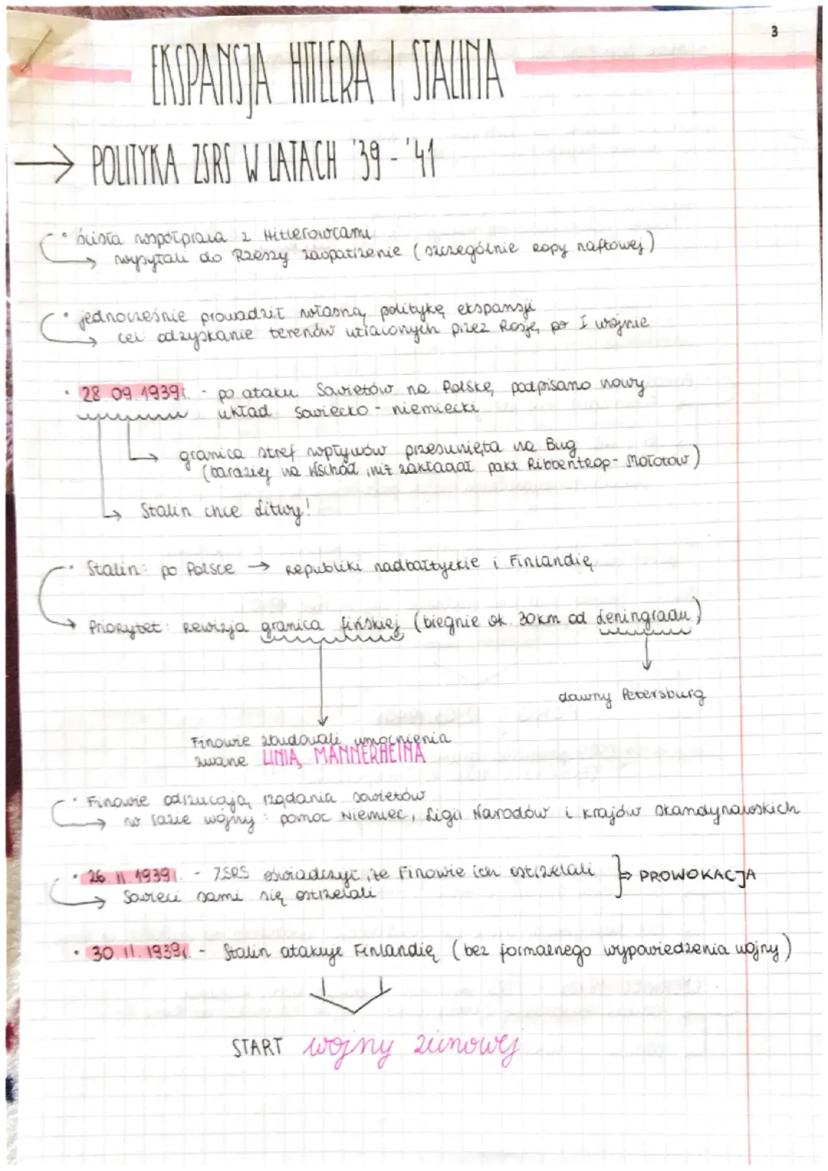 3
EKSPANSJA HITLERA I STALINA
→ POLITYKA ZSRS W LATACH '39 - '41
• ścisła współpraca z Hitlerowcami
→ wysyłali do Rzeszy zaopatrzenie (szczególnie ropy naftowej)
• jednocześnie prowadził własną politykę ekspansji
→ cel odzyskanie terenów utraconych przez Rosję po I wojnie
• 28 09 1939r. - po ataku Sowietów na Polskę, podpisano nowy
układ sowiecko - niemiecki
→ granica stref wpływów przesunięta na Bug
(bardziej na Wschód, niż zakładał pakt Ribbentrop - Mołotow)
→ Stalin chce Litwy!
• Stalin: po Polsce → republiki nadbałtyckie i Finlandię
→ Priorytet: rewizja granica fińskiej (biegnie ok. 30km od Leningradu)
dawny Petersburg
Finowie zbudowali umocnienia
zwane LINIĄ MANNERHEINA
• Finowie odrzucają rządania sowietów
→ w razie wojny: pomoc Niemiec, Ligii Narodów i krajów skandynawskich
• 26 11 1939r. - ZSRS oświadczył, że Finowie ich ostrzelali ⇒ PROWOKACJA
→ Sowieci sami się ostrzelali
• 30 11. 1939r. - Stalin atakuje Finlandię (bez formalnego wypowiedzenia wojny)
START wojny zimowej